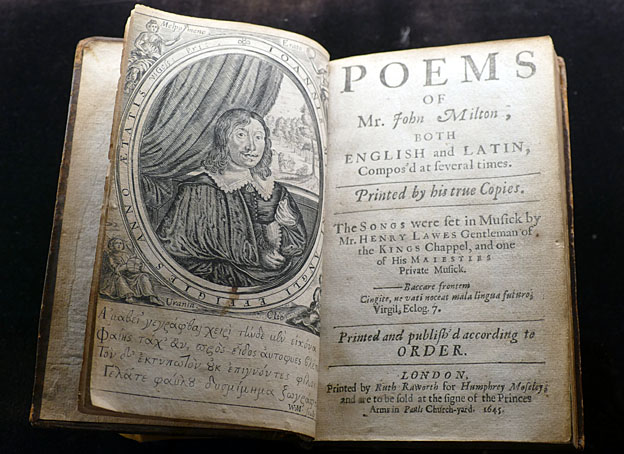 Melpomene
Erato
ANGLI EFFIGIES ANNO ÆTATIS
Urania
Clio
Ἀμαθεῖ γεγράφθαι χειρὶ τήνδε μὲν εἰκόνα
Φαίης τάχ' ἄν, πρὸς εἶδος αὐτοφυὲς
Τὸν δ' ἐκτυπωτὸν οὐκ ἐπιγνόντες φίλοι
Γελᾶτε φαύλου δυσμίμημα
W.M.
POEMS
OF
Mr. John Milton,
BOTH
ENGLISH and LATIN,
Compos'd at several times.
Printed by his true Copies.
The SONGS were set in Musick by
Mr. HENRY LAWES Gentleman of
the KINGS Chappel, and one
of His MAIESTIES
Private Musick.
——Baccare frontem
Cingite, ne vati noceat mala lingua futuro;
Virgil, Eclog. 7.
Printed and publish'd according to
ORDER.
LONDON,
Printed by Ruth Raworth for Humphrey Moseley;
and are to be sold at the signe of the Princes
Arms in Pauls Church-yard. 1645.